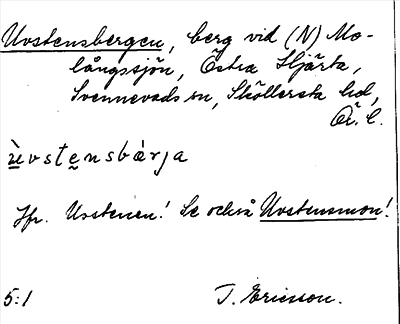 Uvstensbergen, berg vid (N) Mo-
långssjön, Östra Hjärta,
Svennevads sn, Sköllersta hd,
Ör. l.
ùvstensbärja
Jfr. Uvstenen! Se också Uvstensmon!
5:1 T. Ericsson.